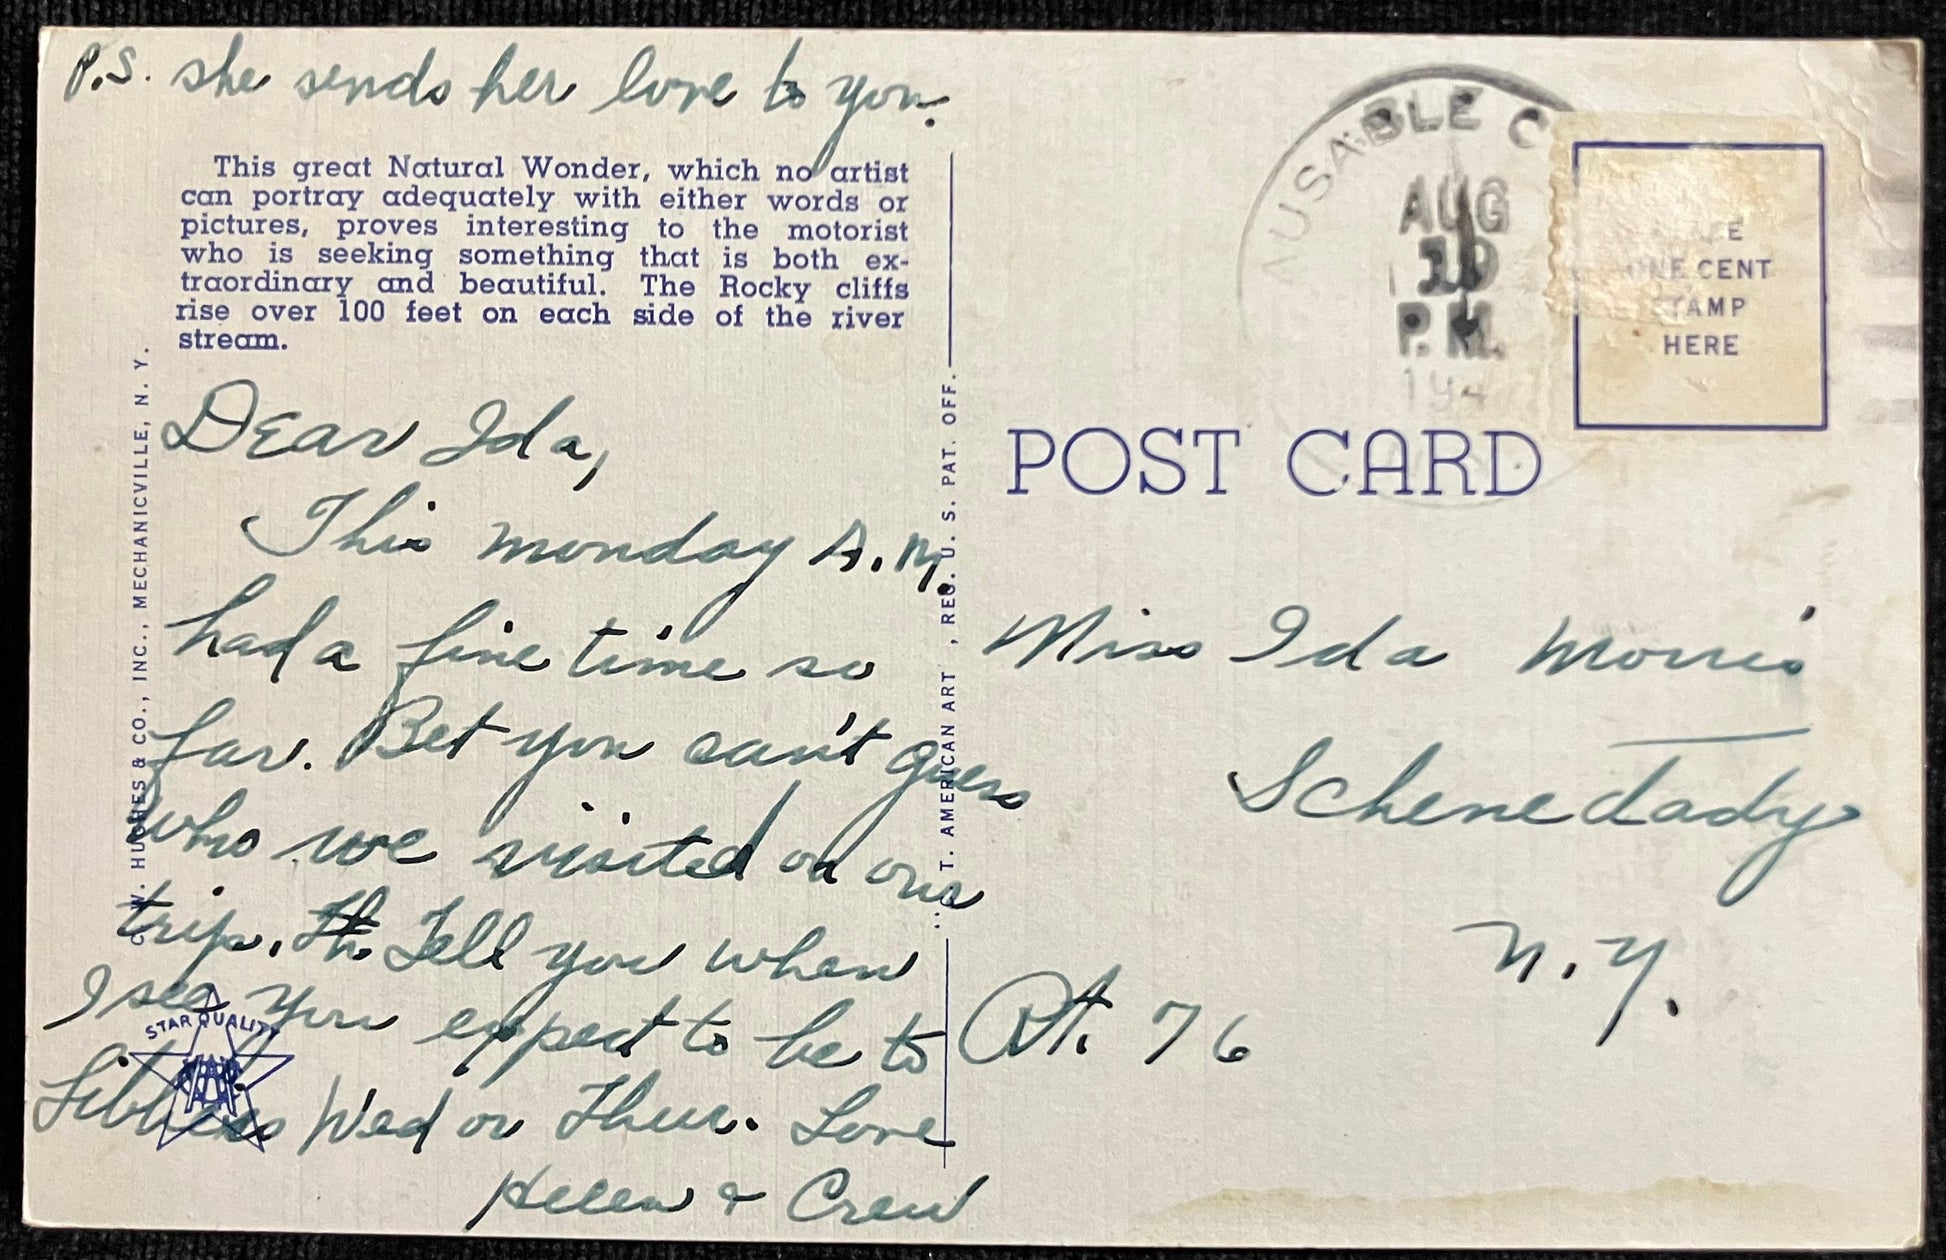 P.S. she sends her love to you.
This great Natural Wonder, which no artist
can portray adequately with either words or
pictures, proves interesting to the motorist
who is seeking something that is both ex-
traordinary and beautiful. The Rocky cliffs
rise over 100 feet on each side of the river
stream.
Dear Ida,
This monday A.M.
had a fine time so
far. Bet you can't guess
who we visited on our
trip. Th. Tell you when
I see you expect to be to
Wed or Thur. Love
Helen & Crew
STAR QUALITY
C. W. HUGHES & CO., INC., MECHANICVILLE, N. Y.
T. AMERICAN ART, REG. U. S. PAT. OFF.
AUSABLE C
AUG
P.M.
194
ONE CENT
STAMP
HERE
POST CARD
Miss Ida Morris
Schenedtady
N.Y.
Rt. 76